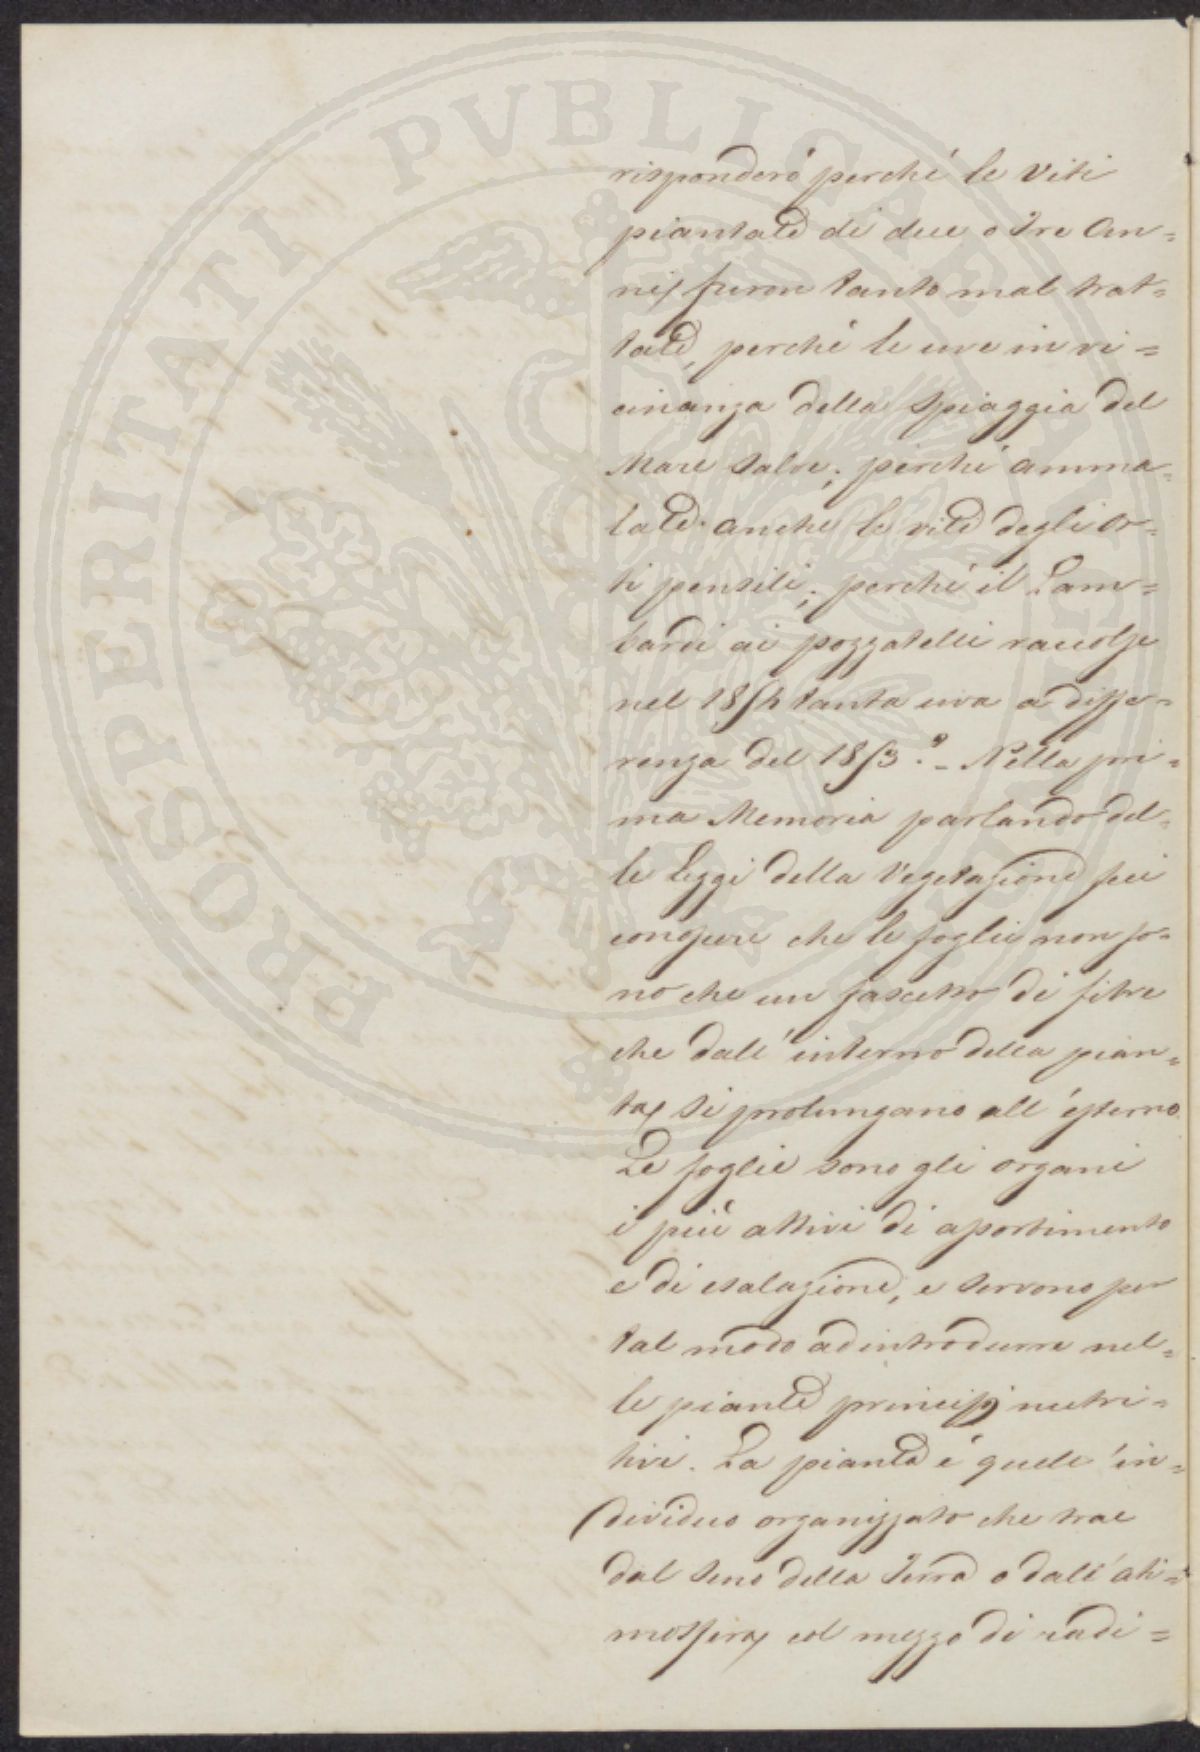 PROSPERITATI PVBLICAE
risponderò perchè le Viti
piantate di due o tre An=
ni, furon tanto mal trat=
tate, perchè le uve in vi=
cinanza della Spiaggia del
Mare salve; perchè amma=
late anche le vite degli or=
ti pensili; perchè il Lom=
bardi ai pozzatelli raccolse
nel 1854 tanta uva a diffe=
renza del 1853.° - Nella pri=
ma Memoria parlando del=
le Leggi della Vegetazione feci
conoscere che le foglie non so=
no che un fascetto di fibre
che dall'interno della pian=
ta, si prolungano all'esterno
Le foglie sono gli organi
i più attivi di assorbimento
e di esalazione, e servono per
tal modo ad introdurre nel=
le piante principj nutri=
tivi. La pianta è quell'in=
dividuo organizzato che trae
dal seno della Terra o dall'at=
mosfera, col mezzo di radi=